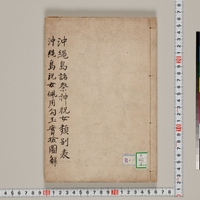 沖縄島諸祭神祝女類別表
沖縄島祝女佩用勾玉實檢圖解